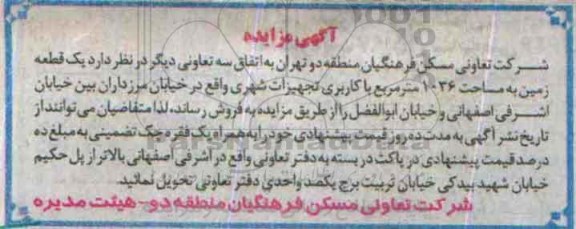 آگهی مزایده
شرکت تعاونی مسکن فرهنگیان منطقه دو تهران به اتفاق سه تعاونی دیگر در نظر دارد یک قطعه
زمین به مساحت ۱۰۳۶ مترمربع با کاربری تجهیزات شهری واقع در خیابان مرزداران بین خیابان
اشرفی اصفهانی و خیابان ابوالفضل را از طریق مزایده به فروش رساند، لذا متقاضیان می‌توانند از
تاریخ نشر آگهی به مدت ده روز قیمت پیشنهادی خود را به همراه یک فقره چک تضمینی به مبلغ ده
درصد قیمت پیشنهادی در پاکت در بسته به دفتر تعاونی واقع در اشرفی اصفهانی بالاتر از پل حکیم
خیابان شهید بیدکی خیابان تربیت برج یکصد واحدی دفتر تعاونی تحویل نمائید.
شرکت تعاونی مسکن فرهنگیان منطقه دو - هیئت مدیره